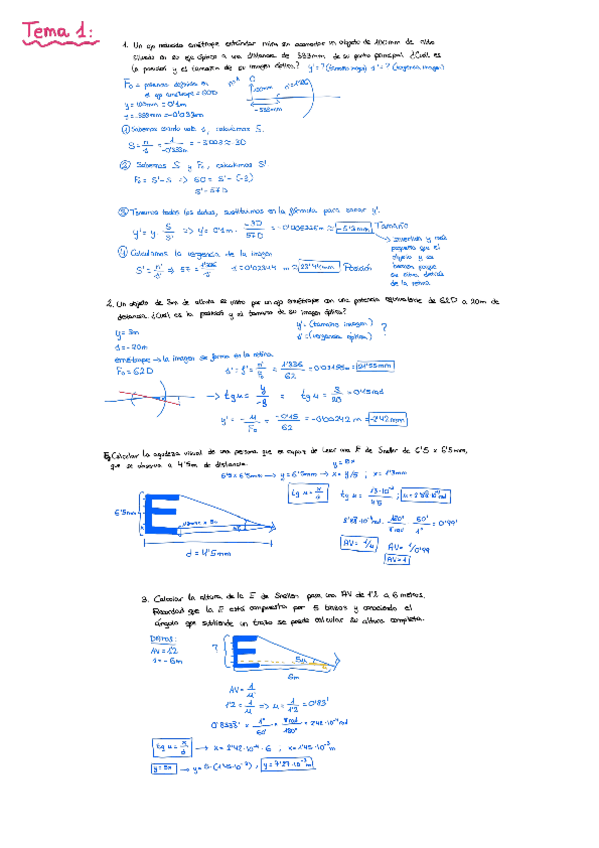 Tema 1:
1. Un ojo reducido emétrope estándar mira sin acomodar un objeto de 100mm de alto
situado en su eje óptico a una distancia de 333mm de su punto principal. ¿Cuál es
la posición y el tamaño de su imagen óptica? y'=? (tamaño imagen) s'=? (vergencia imagen)
F₀ = potencia definida en
el ojo emétrope = 60D
y = 100mm = 0'1m
s = -333mm = -0'033m
-333mm
① Sabemos cuanto vale s, calculamos S.
S = n/s = 1/-0'333m = -3'003 ≈ 3D
② Sabemos S y F₀, calculamos S'
F₀ = S' - S => 60 = S' - (-3)
S' = 57D
③ Tenemos todos los datos, sustituimos en la fórmula para sacar y'.
y' = y · S/S' => y' = 0'1m · -3D/57D = -5'3mm Tamaño
invertida y más
pequeña que el
objeto y es
borrosa porque
se sitúa detrás
de la retina.
④ Calculamos la vergencia de la imagen
S' = n'/s' => 57 = 1'336/s' s = 0'02344 m = 23'44mm Posición
2. Un objeto de 3m de altura es visto por un ojo emétrope con una potencia equivalente de 62D a 20m de
distancia. ¿Cuál es la posición y el tamaño de su imagen óptica?
y = 3m
y' = (tamaño imagen)
s' = (vergencia óptica) ?
s = -20m
emétrope → la imagen se forma en la retina.
F₀ = 62D
s' = f' = n'/F₀ = 1'336/62 = 0'02155m = 21'55mm
→ tg u = y/-s = tg u = 3/20 = 0'15rad
y' = -u/F₀ = -0'15/62 = -0'00242 m = -2'42mm
Calcular la agudeza visual de una persona que es capaz de leer una E de Snellen de 6'5 x 6'5mm,
que se observa a 4'5m de distancia.
y = 5x
6'5 x 6'5mm → y = 6'5mm → x = y/5 ; x = 1'3mm
6'5mm
d = 4'5mm
AV = 1/u
AV = 1/0'99
AV = 1
3. Calcular la altura de la E de Snellen para una AV de 1'2 a 6 metros.
Recordad que la E está compuesta por 5 brazos y conociendo el
ángulo que subtiende un trazo se puede calcular su altura completa.
DATOS:
AV = 1'2
s = -6m
?
5u
6m
AV = 1/u
1'2 = 1/u => u = 1/1'2 = 0'83'
0'8333' × 1°/60' × π rad/180° = 2'42·10⁻⁴ rad
tg u = x/d → x = 2'42·10⁻⁴ · 6 ; x = 1'45·10⁻³ m
y = 5x → y = 5·(1'45·10⁻³) ; y = 7'27·10⁻³ m